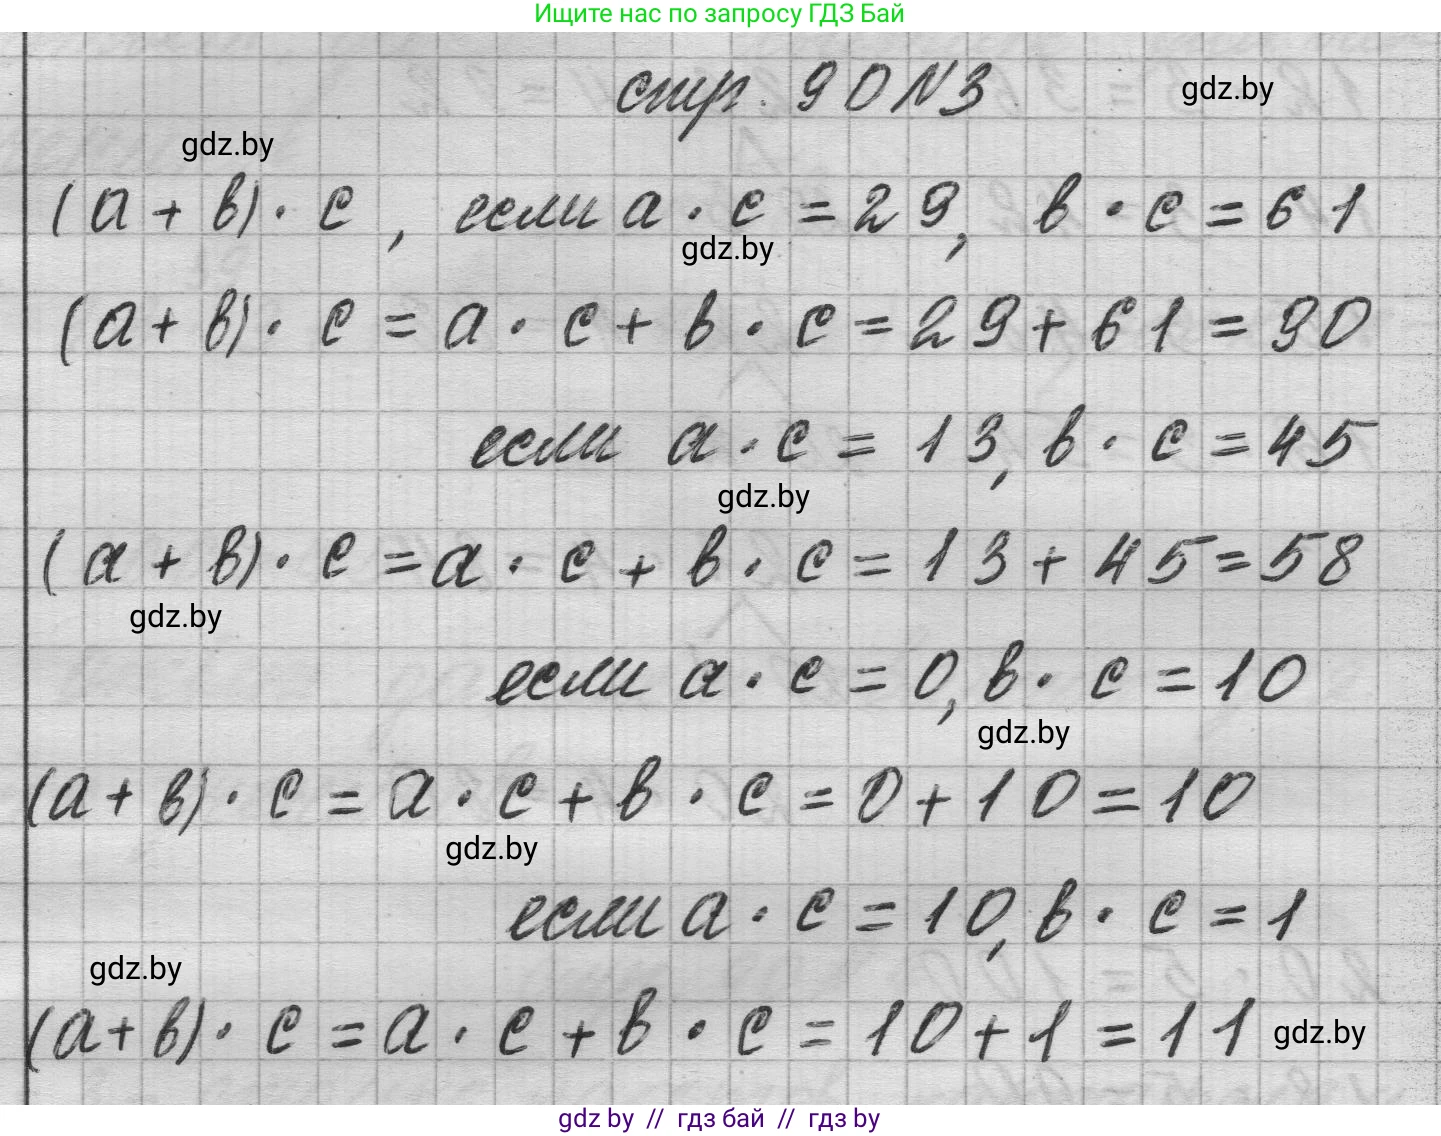 Ищите нас по запросу ГДЗ Бай
стр. 90 N3
gdz.by
gdz.by
(а + в) · с , если а · с = 29, в · с = 61
gdz.by
(а + в) · с = а · с + в · с = 29 + 61 = 90
если а · с = 13, в · с = 45
gdz.by
(а + в) · с = а · с + в · с = 13 + 45 = 58
gdz.by
если а · с = 0, в · с = 10
gdz.by
(а + в) · с = а · с + в · с = 0 + 10 = 10
gdz.by
если а · с = 10, в · с = 1
gdz.by
(а + в) · с = а · с + в · с = 10 + 1 = 11
gdz.by
gdz by // гдз бай // гдз by